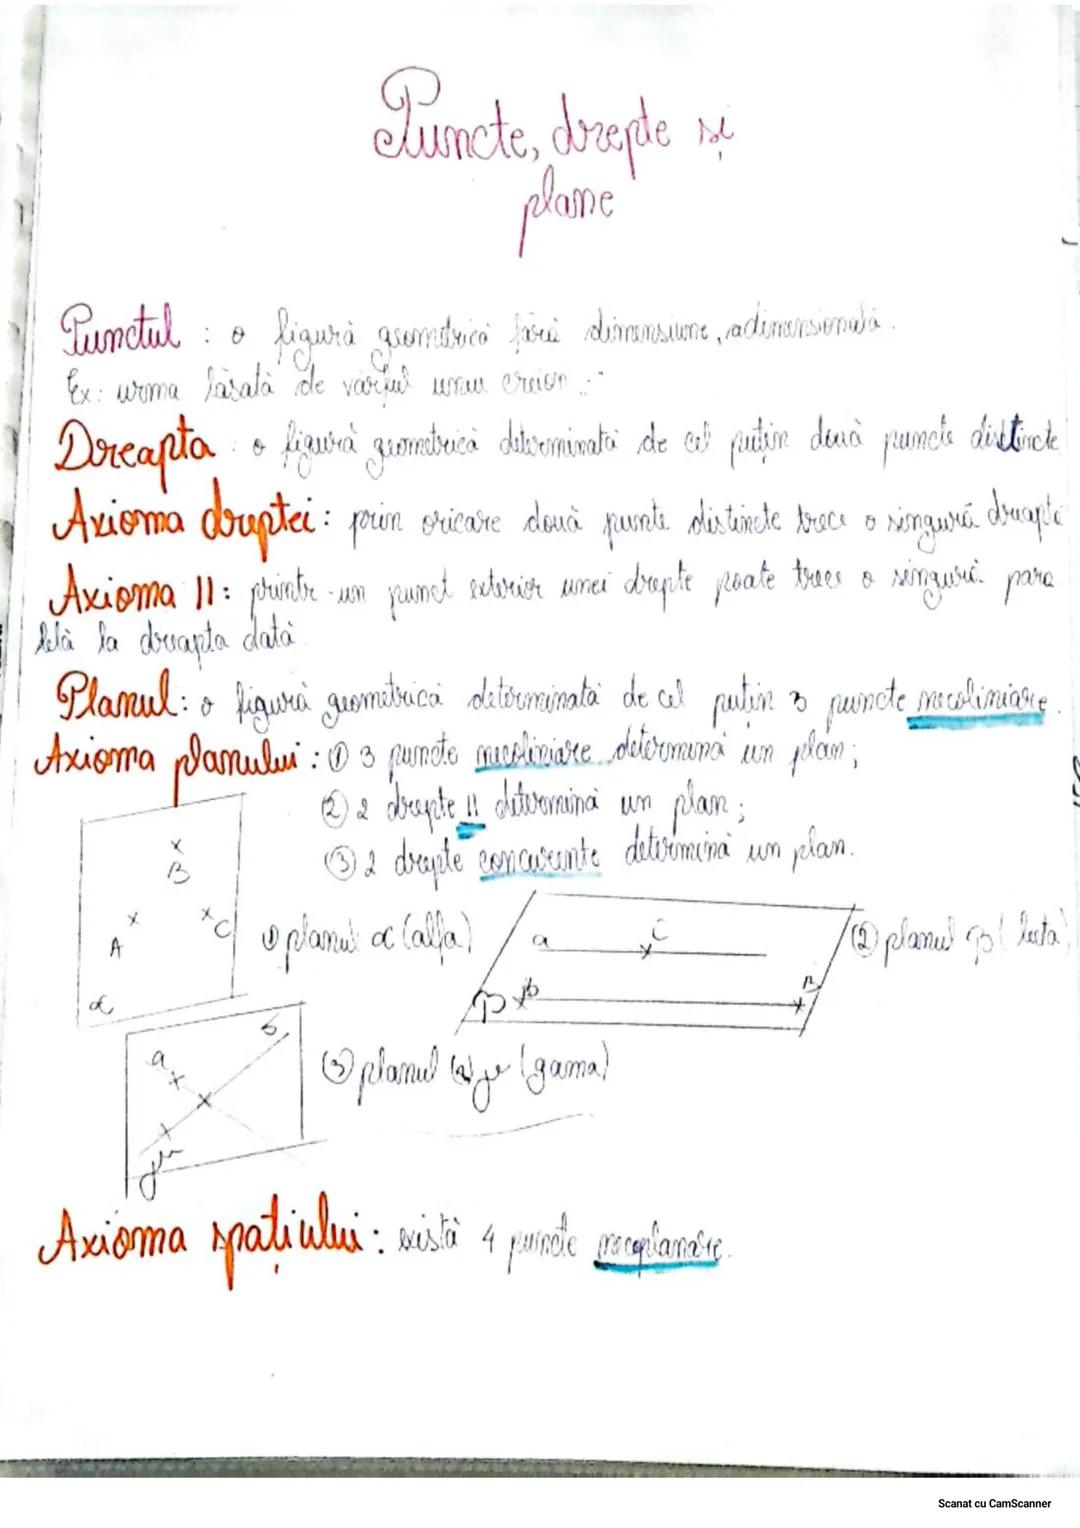 Puncte, drepte și
plane
Punctul : o figură geometrică fără dimensiune, adimensională.
Ex: urma lăsată de vârful unui creion
Dreapta : o figură geometrică determinată de cel puțin două puncte distincte
Axioma dreptei : prin oricare două punte distincte trece o singură dreaptă
Axioma || : printr-un punct exterior unei drepte poate trece o singură para
lelă la dreapta dată
Planul : o figură geometrică determinată de cel puțin 3 puncte necoliniare.
Axioma planului : ① 3 puncte necoliniare determină un plan ;
② 2 drepte || determină un plan ;
③ 2 drepte concurente determină un plan.
B
A C
α
① planul α (alfa)
a C
b B
② planul β (beta)
a
③ planul (gama)
Axioma spațiului : există 4 puncte necoplanare.
Scanat cu CamScanner